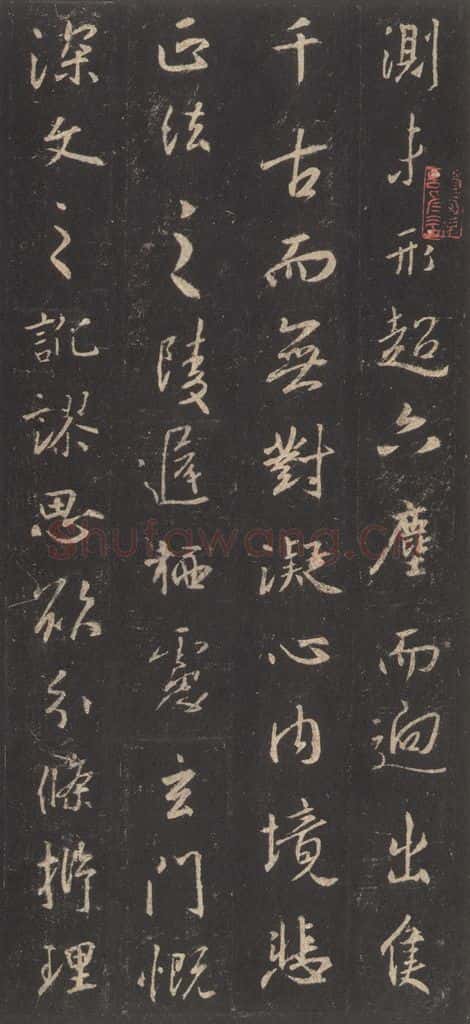 測未形超六塵而迥出隻
千古而無對凝心內境悲
正法之陵遲栖慮玄門慨
深文之訛謬思欲分條㭊理
Shufawang.cn